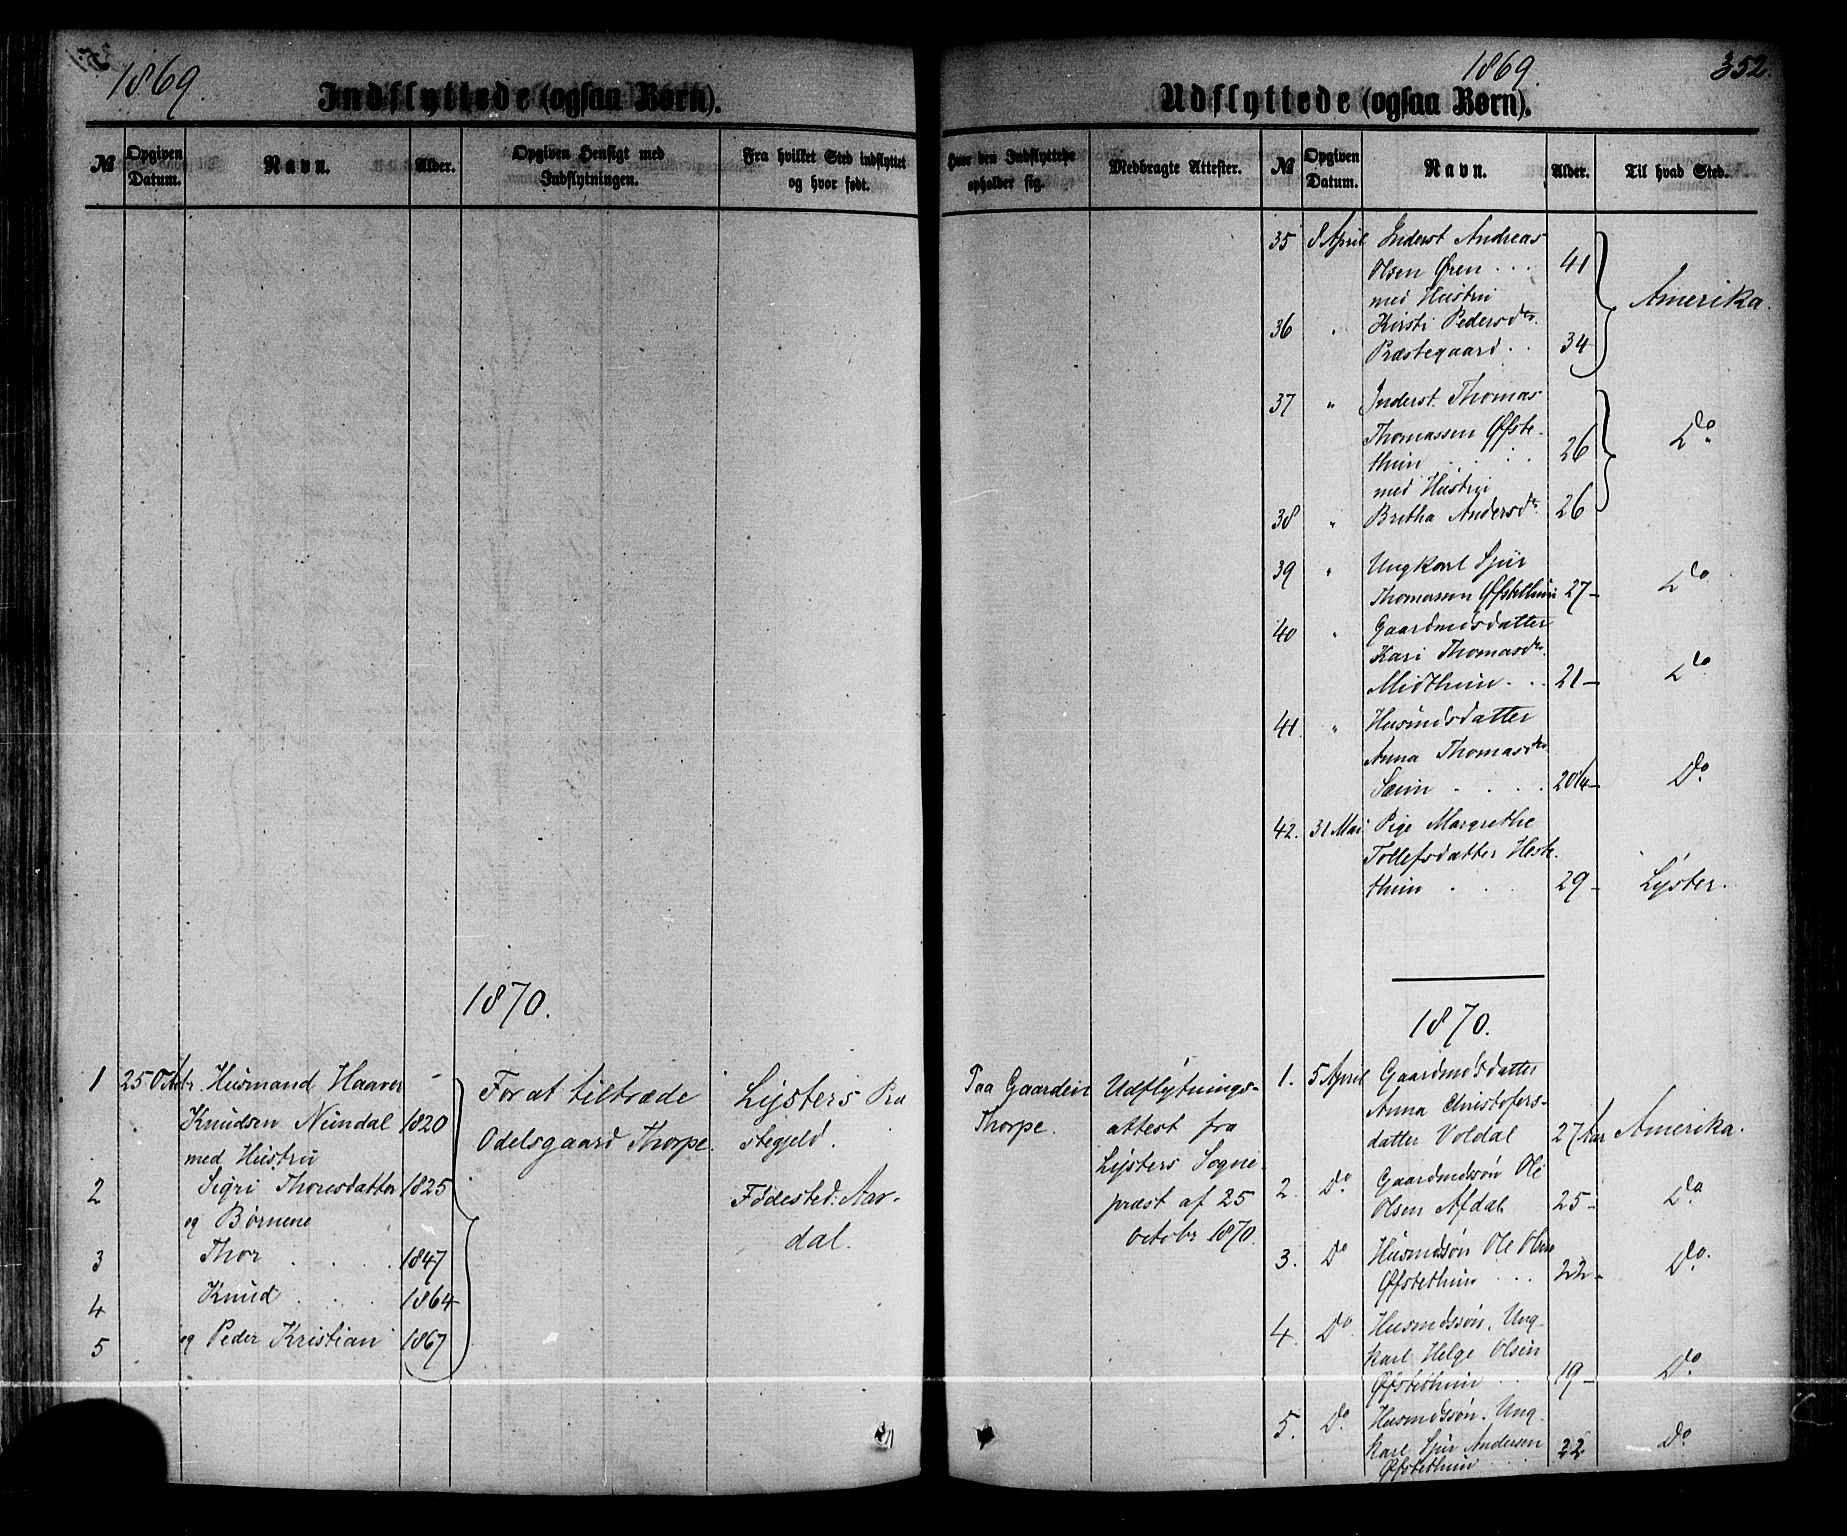 1869.
Indflyttede (ogsaa Børn).
№
Opgiven Datum.
Navn.
Alder.
Opgiven Hensigt med Indflytningen.
Fra hvilket Sted indflyttet og hvor født.
1870.
1 25 Octbr. Husmand Haaver -
Knudsen Nundal 1820
med Hustru
2 Sigri Thoresdatter 1825
og Børnene
3 Thor . . . . 1847
4 Knud . . . 1864
5 og Peder Kristian 1867
For at tiltræde
Odelsgaard Thorpe.
Lysters Præ
stegjeld.
Fødested: Aar-
dal.
1869.
352.
Udflyttede (ogsaa Børn).
Hvor den Indflyttede opholder sig.
Medbragte Attester.
№
Opgiven Datum.
Navn.
Alder.
Til hvad Sted.
Paa Gaarden
Thorpe.
Udflytnings-
attest fra
Lysters Sogne-
præst af 25
octobr 1870.
35 8 April Inderst Andreas
Olsen Øren . . . 41
med Hustru
Amerika.
36 " Kirsti Pedersdtr.
Præstegaard . . 34
37 " Inderst. Thomas
Thomassen Øfste-
thun . . . . 26
Do
med Hustru
38 " Britha Andersdtr. 26
39 " Ungkarl Sjur
Thomassen Øfstethun 27- Do
40 " Gaardmdsdatter
Kari Thomasdtr.
Midthun . . . 21- Do
41. " Husmdsdatter
Anna Thomasdtr.
Sæim . . . . 20¼- Do
42. 31 Mai Pige Margrethe
Tollefsdatter Heste-
thun . . . 29- Lyster.
1870.
1. 5 April Gaardmdsdatter
Anna Christofers-
datter Voldal 27 Aar Amerika.
2. Do Gaardmdssøn Ole
Olsen Afdal 25- Do
3. Do Husmdssøn Ole Olsen
Øfstethun . . . 22- Do.
4. Do. Husmdssøn, Ung-
karl Helge Olsen
Øfstethun . . . 19- Do
5. Do. Husmdssøn. Ung-
karl Sjur Andersen
Øfstethun . . . . 22 Do